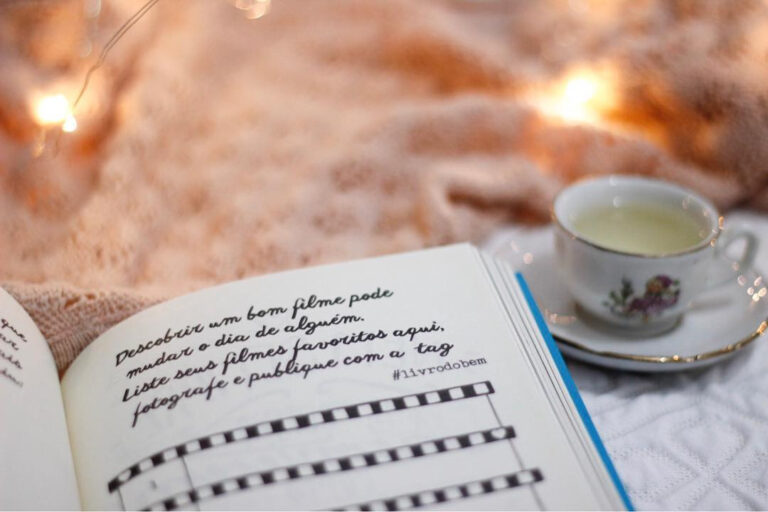 que
Descobrir um bom filme pode
mudar o dia de alguém.
Liste seus filmes favoritos aqui,
fotografe e publique com a tag
#livrodobem